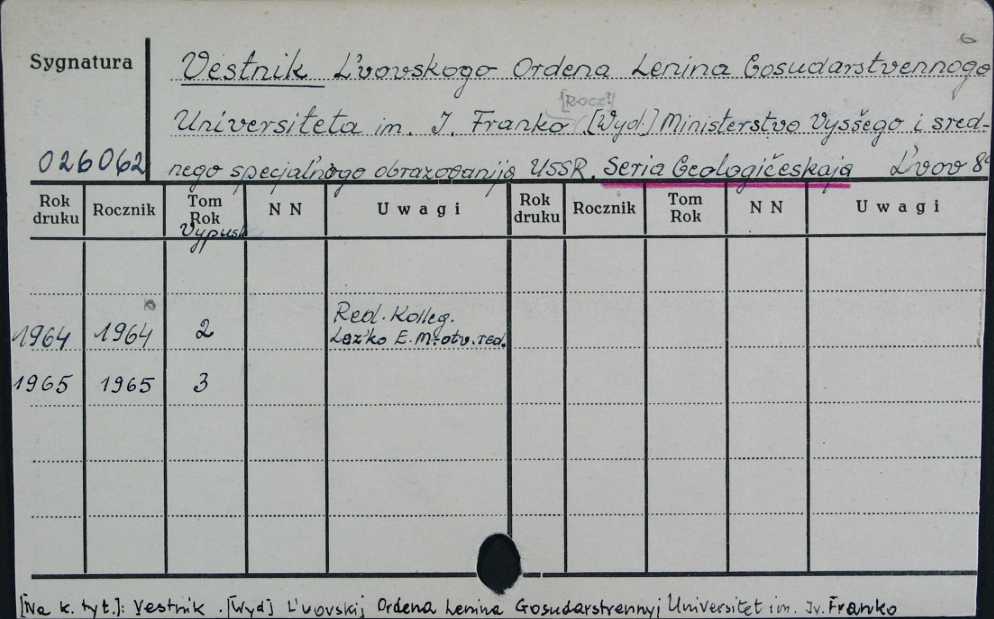 6
Sygnatura
Vestnik L'vovskogo Ordena Lenina Gosudarstvennogo
[Rocz.]
Universiteta im. I. Franko [Wyd.] Ministerstvo Vysšego i sred-
026062 nego special'nogo obrazovanija USSR. Seria Geologičeskaja L'vov 8°
Rok druku Rocznik Tom Rok Vypusk NN Uwagi Rok druku Rocznik Tom Rok NN Uwagi
Red. Kolleg.
1964 1964 2 Laz'ko E. M. otv. red.
1965 1965 3
[Na k. tyt.]: Vestnik. [Wyd] L'vovskij Ordena Lenina Gosudarstvennyj Universitet im. Iv. Franko